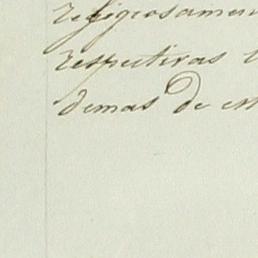 religiosamen
respectivas
demas de es